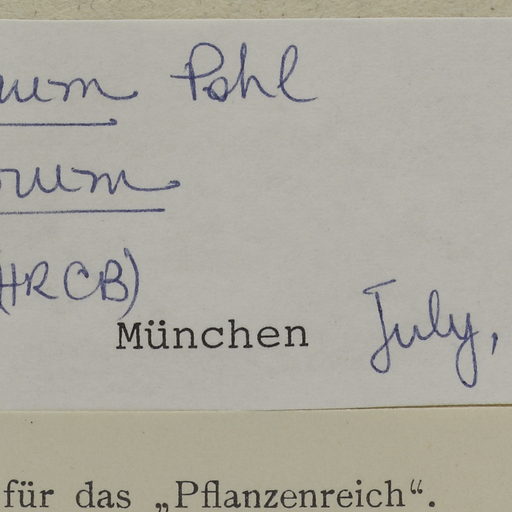 Pohl
(HRCB)
München July,
für das „Pflanzenreich“.